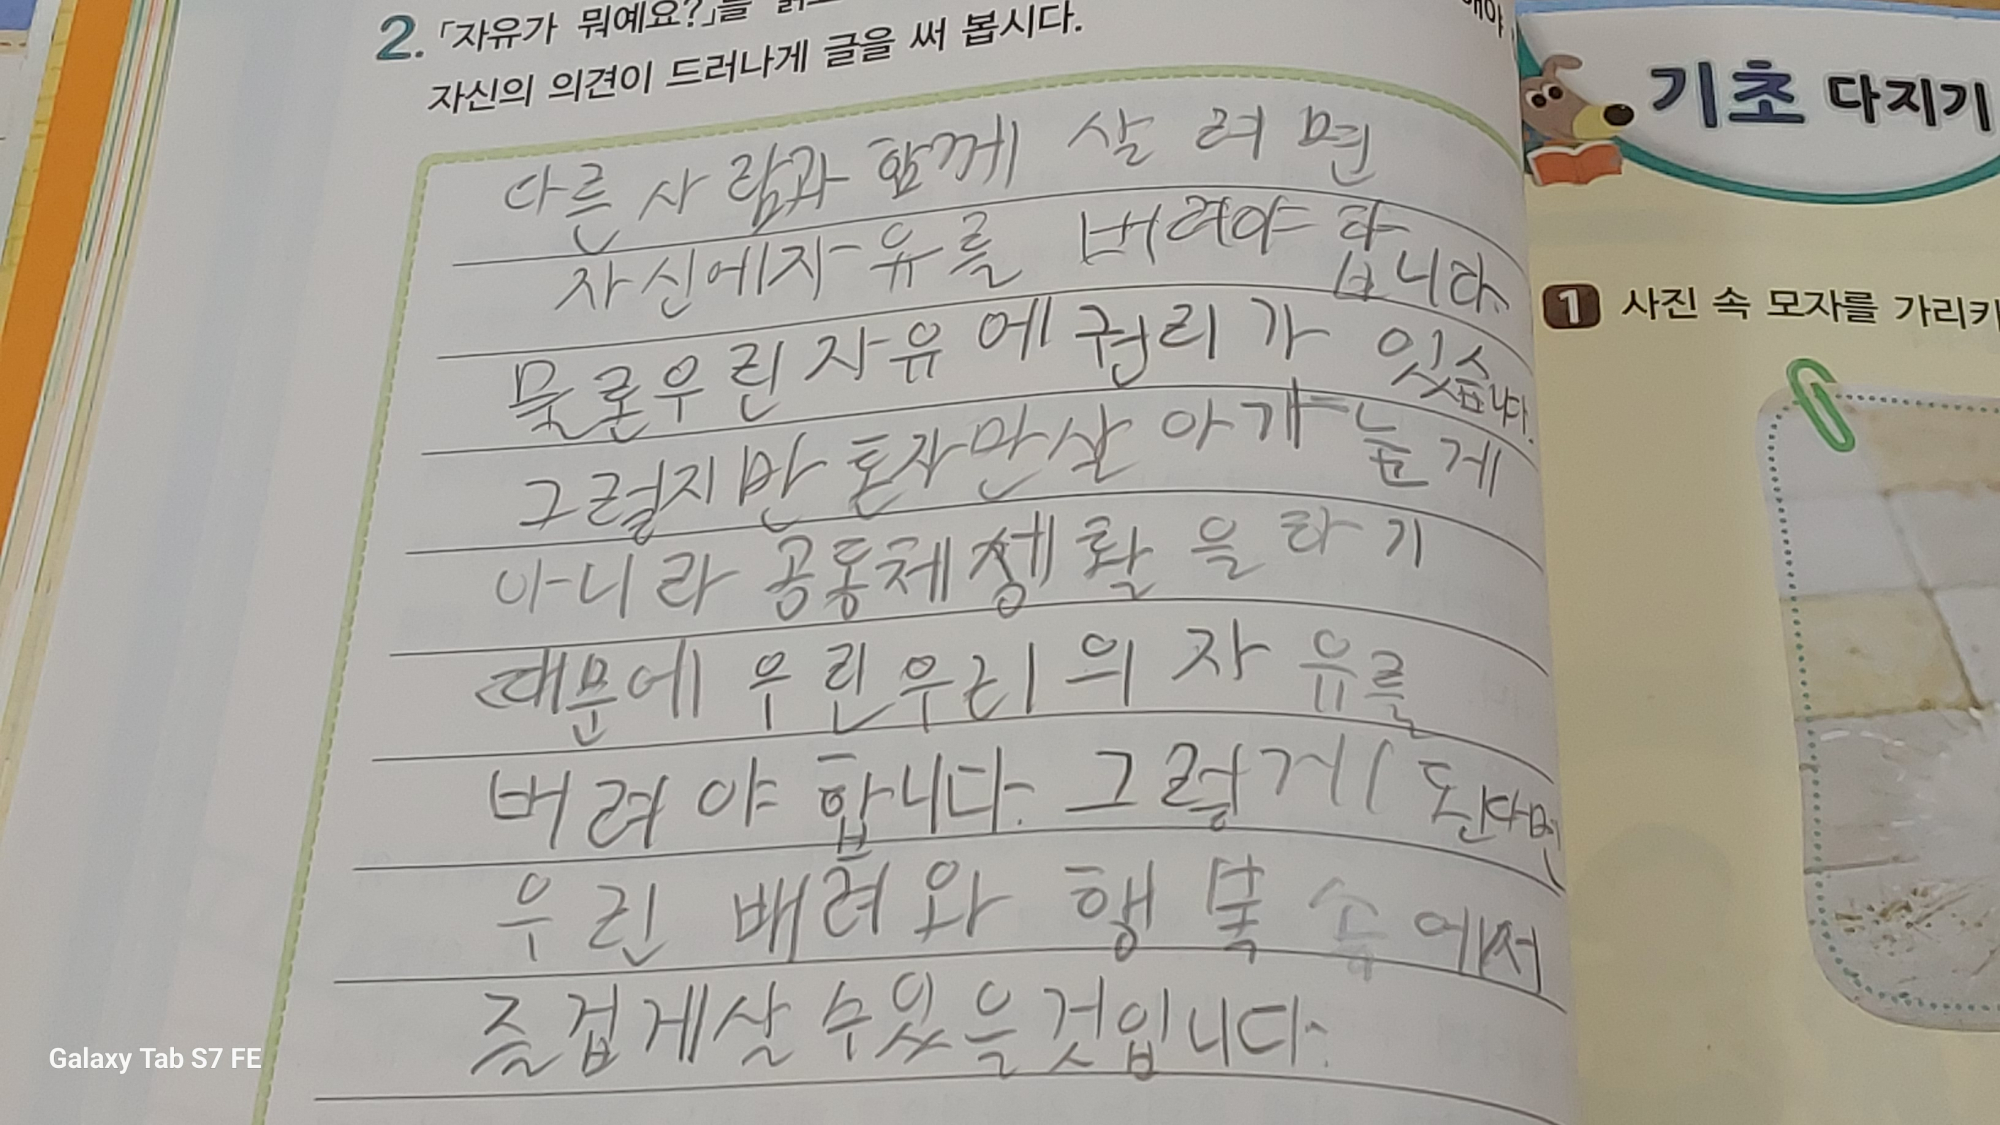 2. 「자유가 뭐예요?」를
자신의 의견이 드러나게 글을 써 봅시다.
다른 사람과 함께 살려면
자신에자유를 버려야 합니다.
물론우린 자유에 권리가 있습니다.
그렇지만 혼자만살아가는게
아니라 공동체생활을하기
때문에 우린우리의 자유를
버려야 합니다. 그렇게 된다면
우린 배려와 행복 속에서
즐겁게살 수있을것입니다.
기초 다지기
1 사진 속 모자를 가리키
Galaxy Tab S7 FE